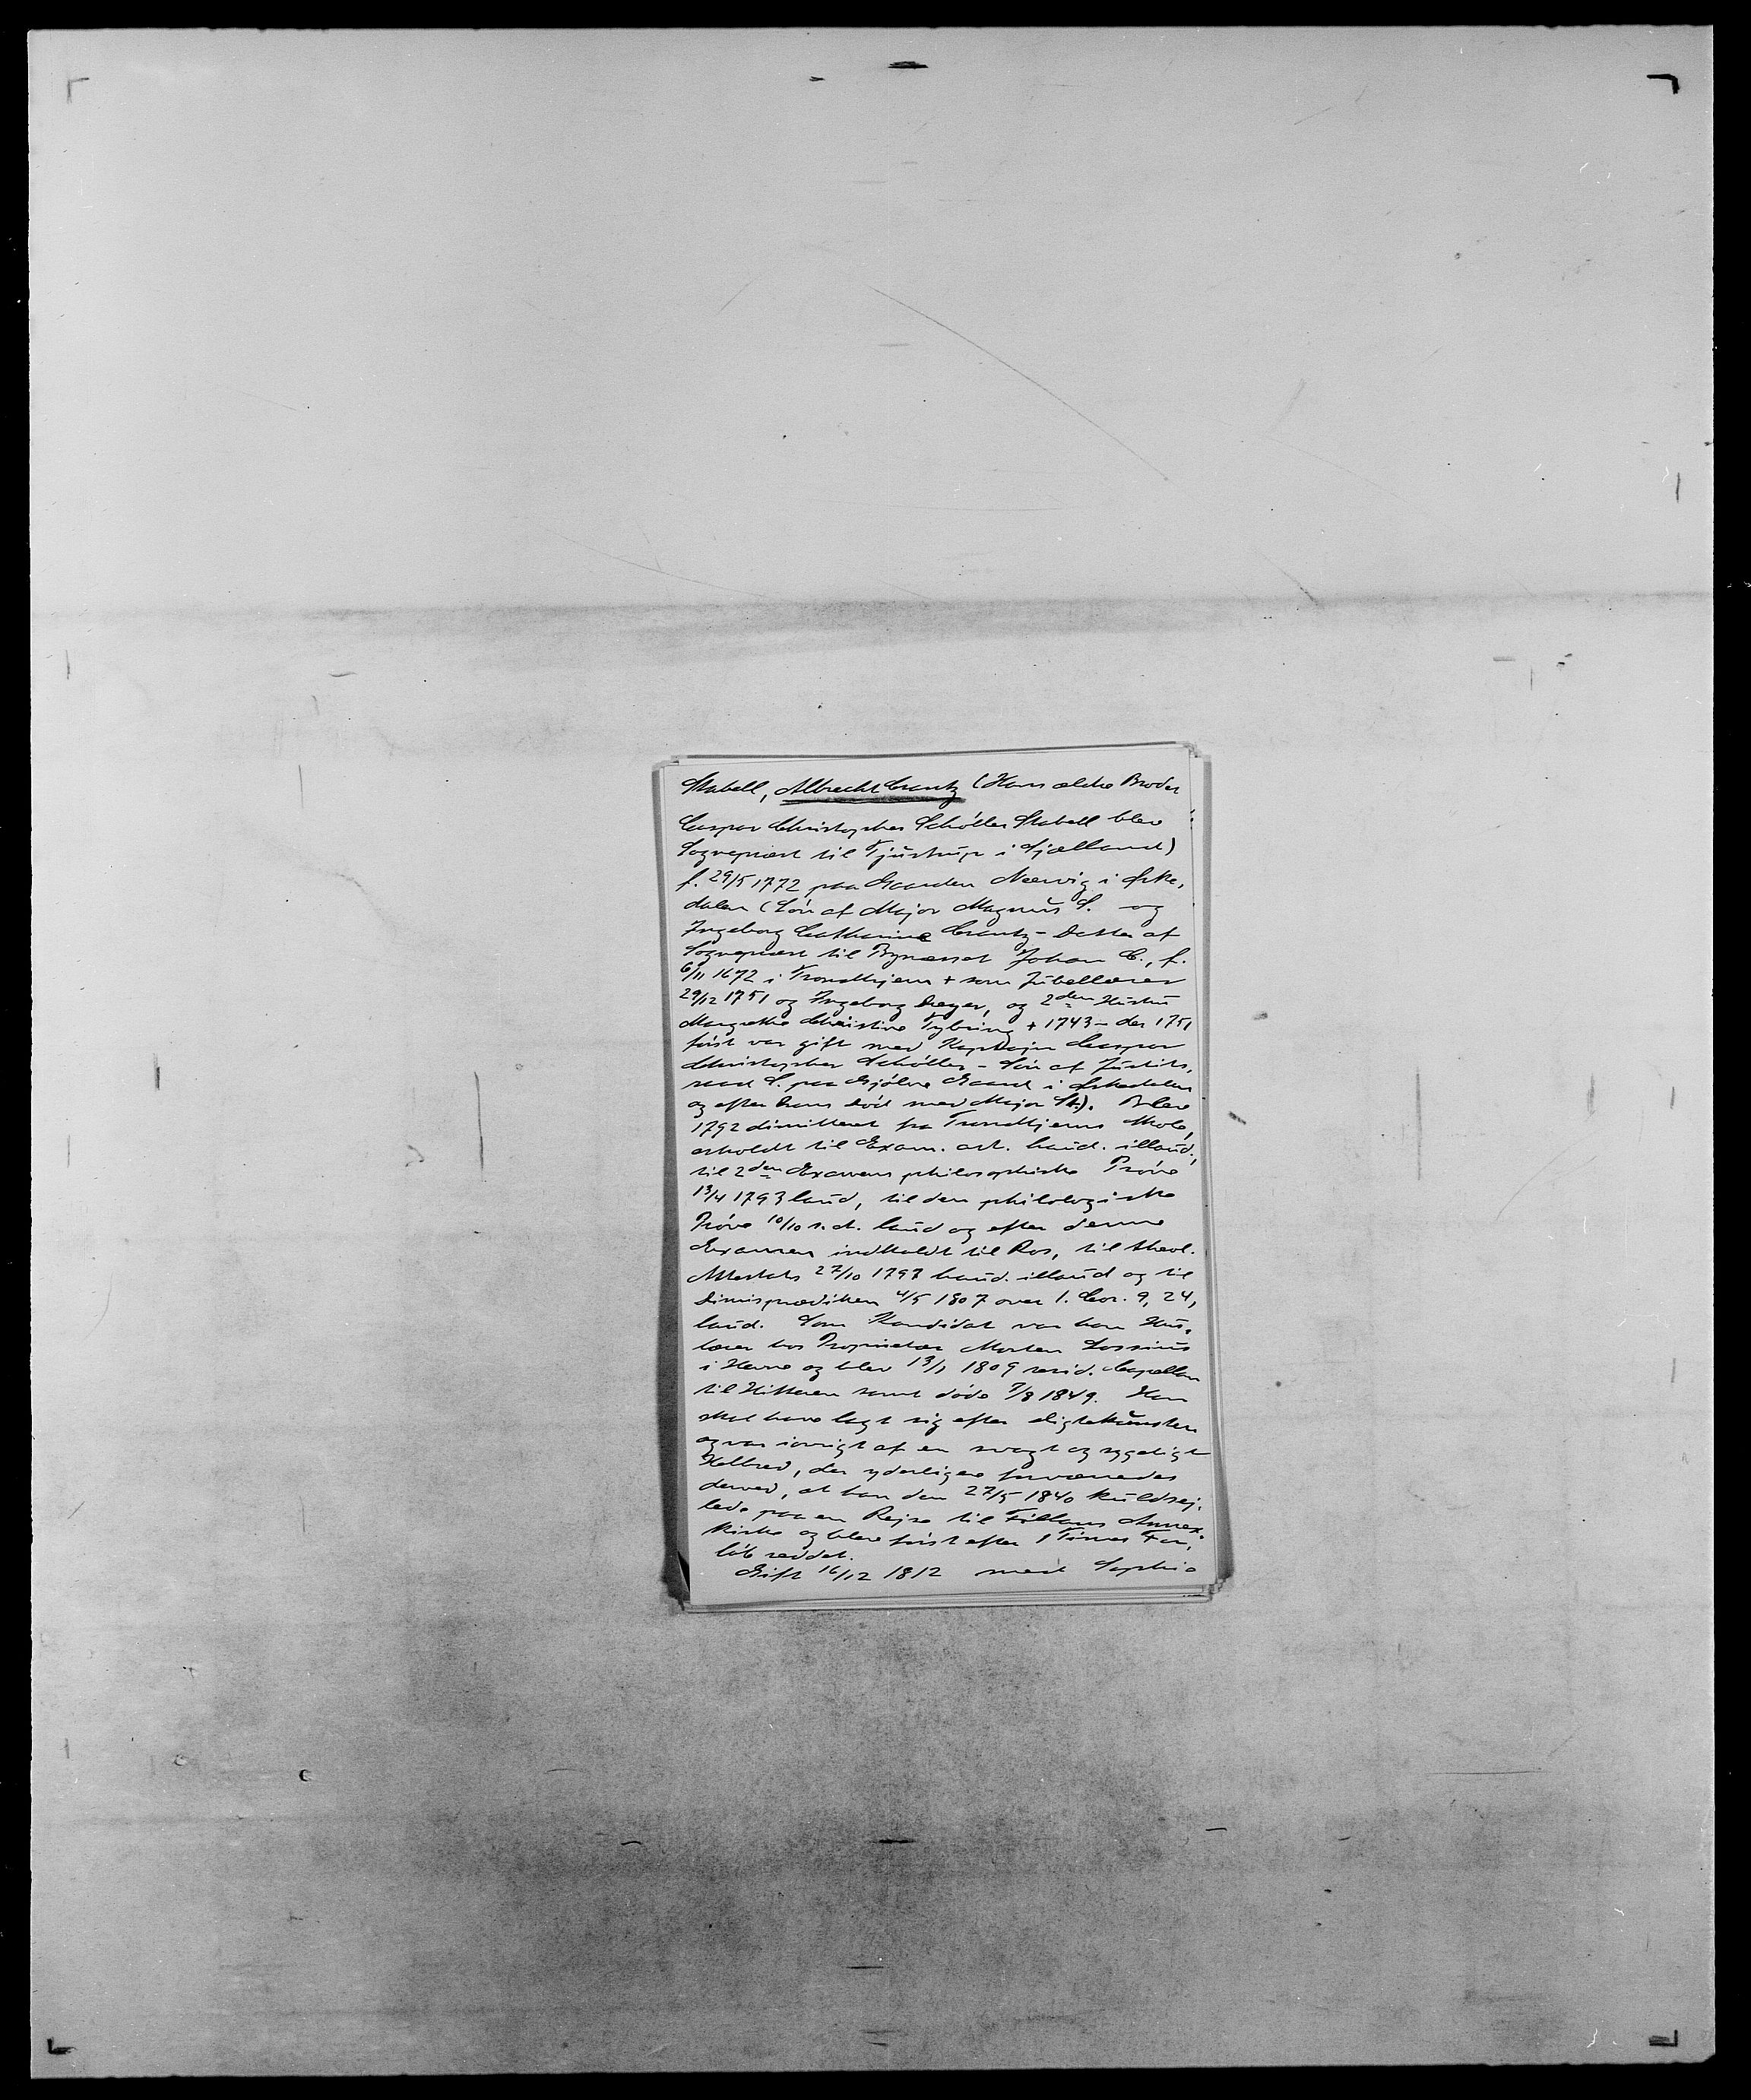 Stabell, Albrecht Crantz (Hans ældre Broder
Caspar Christopher Schøller Stabell blev
Sognepræst til Tjustrup i Sjælland)
f. 29/5 1772 paa Gaarden Nerwig i Ørke,
dalen (Søn af Major Magnus S. og
Ingeborg Catharina Crantz - Datter af
Sognepræst til Bynæsset Johan C., f.
6/11 1672 i Trondhjem + som Jubellærer
29/12 1751 og Ingeborg Dreyer, og 2den Hustru
Margrethe Christine Tybring + 1743 - der 1751
først var gift med Kaptajn Caspar
Christopher Schøller - Søn af Justits,
raad S. paa Gjølme Gaard i Ørkedalen
og efter hans død med Major St.). Blev
1792 dimitteret fra Trondhjems Skole,
erholdt til Exam. art. haud. illaud.,
til 2den Examens philosophiske Prøve
13/4 1793 laud, til den philologiske
Prøve 10/10 s. A. laud og efter denne
Examen indkaldt til Ros, til theol.
Attestats 27/10 1797 haud. illaud og til
Dimisprædiken 4/5 1807 over 1. Cor. 9, 24,
laud. Som Kandidat var han Hus,
lærer hos Proprietær Morten Lossius
i Hevne og blev 13/1 1809 resid. Capellan
til Hitteren samt døde 7/8 1849. Han
skal have lagt sig efter digtekunsten
og var iøvrigt af en svagt og sygeligt
Helbred, der yderligere forværredes
derved, at han den 27/5 1840 kuldsej,
lede paa en Rejse til Fillans Annex,
kirke og blev først efter 1 Times For,
løb reddet.
Gift 16/12 1812 med Sophia